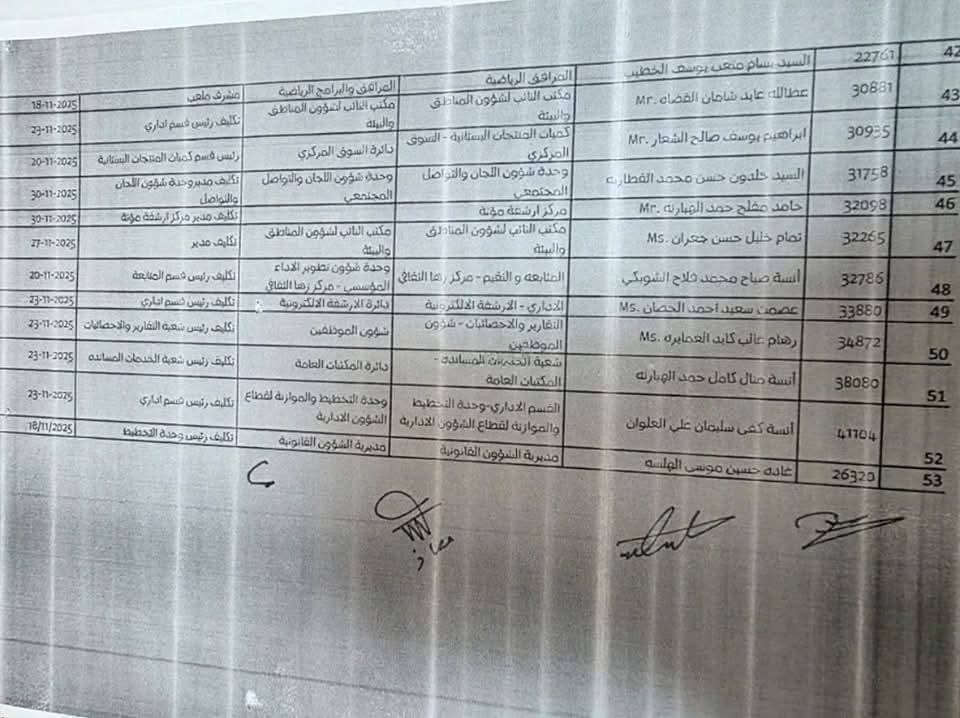 42 22761 السيد بسام متعب يوسف الخطيب المرافق الرياضية المرافق والبرامج الرياضية مشرف ملعب 18-11-2025
43 30881 عطاالله عايد شامان القضاه Mr. مكتب النائب لشؤون المناطق والبيئة مكتب النائب لشؤون المناطق والبيئة تكليف رئيس قسم اداري 23-11-2025
44 30935 ابراهيم يوسف صالح الشعار Mr. كميات المنتجات البستانية - السوق المركزي دائرة السوق المركزي رئيس قسم كميات المنتجات البستانية 20-11-2025
45 31758 السيد خلدون حسن محمد القطارنه وحدة شؤون اللجان والتواصل المجتمعي وحدة شؤون اللجان والتواصل المجتمعي تكليف مديروحدة شؤون اللجان والتواصل 30-11-2025
46 32098 حامد مفلح حمد الهبارنه Mr. مركز ارشفة مؤتة تكليف مدير مركز ارشفة مؤتة 30-11-2025
47 32265 تمام خليل حسن جعران Ms. مكتب النائب لشؤون المناطق والبيئة مكتب النائب لشؤون المناطق والبيئة تكليف مدير 27-11-2025
48 32786 آنسة صباح محمد فلاح الشوبكي المتابعه و التقيم - مركز زها الثقافي وحدة شؤون تطوير الاداء المؤسسي - مركز زها الثقافي تكليف رئيس قسم المتابعة 20-11-2025
49 33880 عصمت سعيد احمد الحصان Ms. الاداري - الارشفة الالكترونية دائرة الارشفة الالكترونية تكليف رئيس قسم اداري 23-11-2025
50 34872 رهام غالب كايد العمايره Ms. التقارير والاحصائيات - شؤون الموظفين شؤون الموظفين تكليف رئيس شعبة التقارير والاحصائيات 23-11-2025
51 38080 آنسة منال كامل حمد الهبارنه شعبة الخدمات المسانده - المكتبات العامة دائرة المكتبات العامة تكليف رئيس شعبة الخدمات المسانده 23-11-2025
52 41104 آنسة كفى سليمان علي العلوان القسم الاداري-وحدة التخطيط والموازنة لقطاع الشؤون الادارية وحدة التخطيط والموازنة لقطاع الشؤون الادارية تكليف رئيس قسم اداري 23-11-2025
53 26320 غاده حسين موسى الهلسه مديرية الشؤون القانونية مديرية الشؤون القانونية تكليف رئيس وحدة التخطيط 18/11/2025